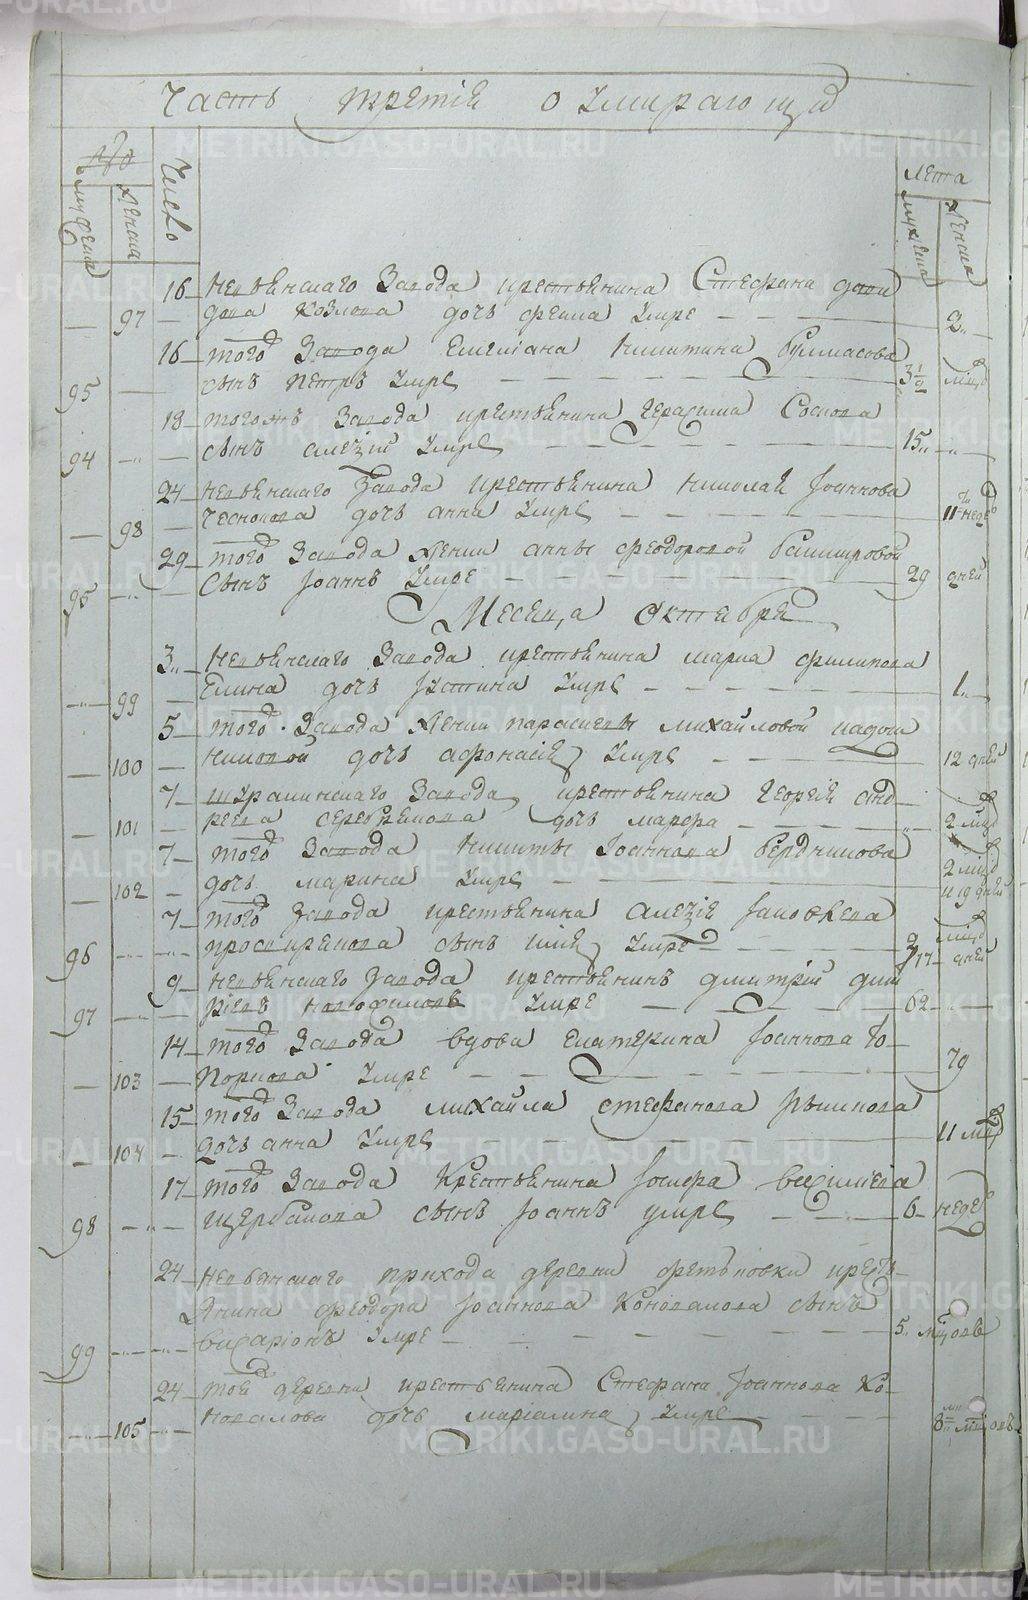 Часть третія о умирающи
Число
Лета
мужеска
женска
мужеска
женска
16 Невьянскаго Завода крестьянина Стефана дави
97 дова Козлова дочь фекла умре 2
16 того Завода Емелиана Никитина
95 сынъ Петръ умре 3 1/2 мцо
18 тогожъ Завода крестьянина Герасима Соснова
94 сынъ алезій умре 15
24 Невьянскаго Завода крестьянина Николая Іоаннова
98 Чеснокова дочь анна умре 11 неде
29 того Завода женки анны феодоровой башкировой
95 Сынъ Іоаннъ умре 29 дней
Месяца Октября
3 Невьянскаго Завода крестьянина марка филипова
99 Елина дочь Іустина умре 1
5 того Завода женки параскевы михайловой
100 дочь афонасія умре 12 дней
7 шуралинскаго Завода крестьянина Георгія анд
101 реева серебрякова дочь марфа 2 мцо
7 того Завода Никиты Іоаннова бердникова
102 дочь марина умре 2 мцо
и 19 дней
7 того Завода крестьянина алезіе Іаковлева
96 проскурекова сынъ илія умре 9 мцо
17 дней
9 Невьянскаго Завода крестьянинъ дмитрій дми
97 ріевъ умре 62
14 того Завода вдова екатерина Іоаннова То
103 поркова умре 79
15 того Завода михайла стефанова
104 дочь анна умре 11 мцо
17 того Завода Крестьянина Іосифа
98 щербакова сынъ Іоаннъ умре 6 неде
24 Невьянскаго прихода деревни фетьковки кресть
янина феодора Іоаннова Коновалова сынъ
99 висаріонъ умре 5 мцовъ
24 той деревни крестьянина Стефана Іоаннова Ко
105 новалова дочь маріамна умре 8 мцовъ
METRIKI.GASO-URAL.RU